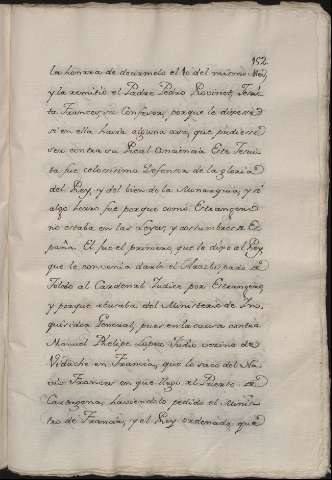 152
la honrra de decirmelo el 10 del mismo Mes,
y la remitió el Padre Pedro Rovinet, Jesui
ta Frances, su Confesor, porque le dixese
si en ella havia alguna cosa, que pudiesse
ser contra su Real Conciencia Este Jesui
ta fue celossisimo Defensor de la gloria
del Rey, y del bien de la Monarquia, y si
algo herro fue porque como Estrangero
no estaba en las Leyes, y costumbres de Es
paña. El fue el primero, que le dijo al Rey,
que le convenia darle el Arzobispado de
Toledo al Cardenal Judice por Estrangero,
y porque abusaba del Ministerio de In
quisidor General, pues en la causa contra
Manuel Phelipe Lopez Judio vecino de
Viduche en Francia, que lo saco del Na
vio Frances en que llego al Puerto de
Cartagena, haviendolo pedido el Minis
tro de Francia, y el Rey ordenado, que